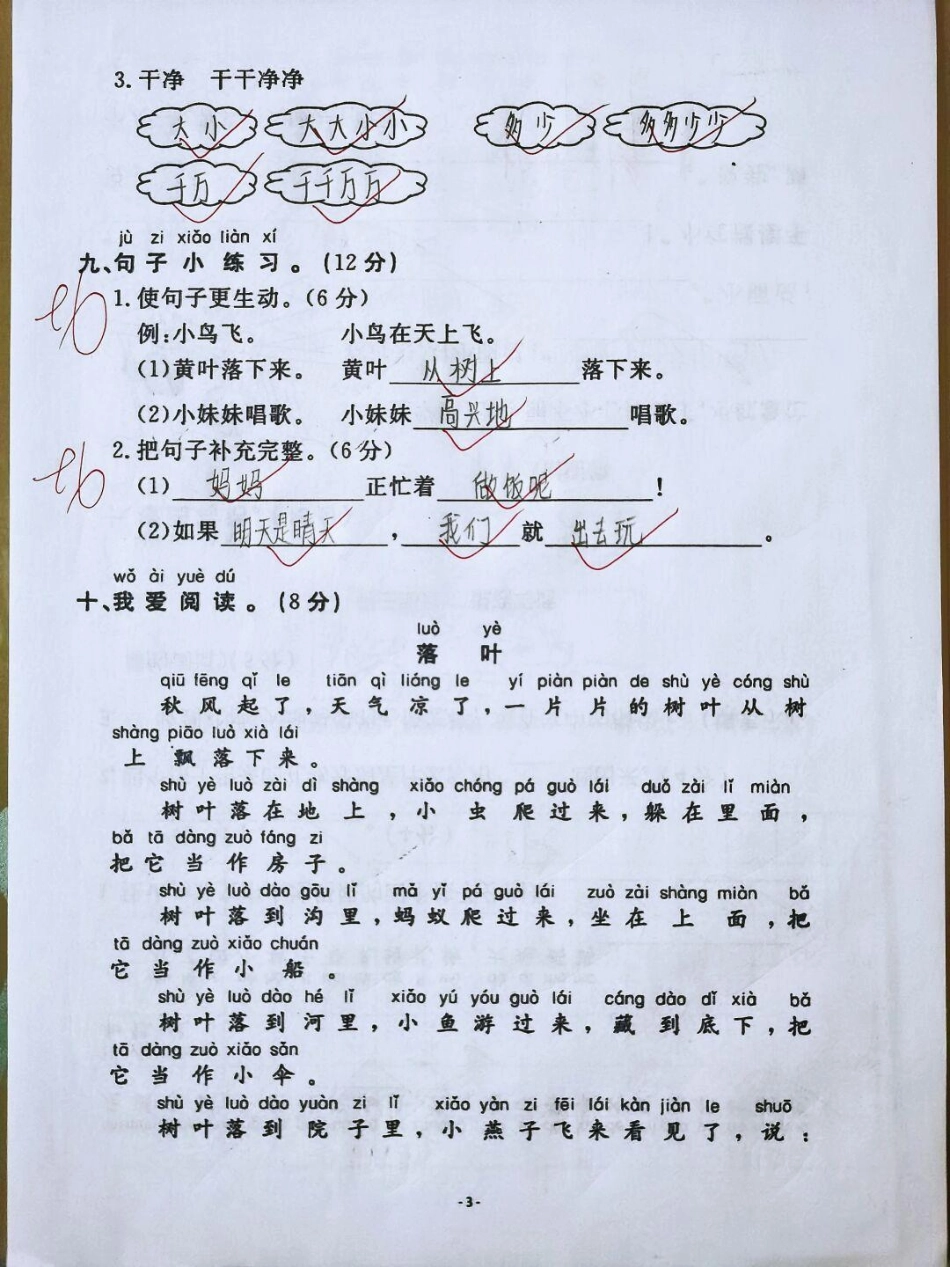 3.干净 干干净净
大小 大大小小 多少 多多少少
千万 千千万万
jù zi xiǎo liàn xí
九、句子小练习。(12分)
1.使句子更生动。(6分)
例:小鸟飞。 小鸟在天上飞。
(1)黄叶落下来。 黄叶从树上落下来。
(2)小妹妹唱歌。 小妹妹高兴地唱歌。
2.把句子补充完整。(6分)
(1)妈妈正忙着做饭呢!
(2)如果明天是晴天,我们就出去玩。
wǒ ài yuè dú
十、我爱阅读。(8分)
luò yè
落叶
qiū fēng qǐ le tiān qì liáng le yí piàn piàn de shù yè cóng shù
秋风起了,天气凉了,一片片的树叶从树
shàng piāo luò xià lái
上飘落下来。
shù yè luò zài dì shàng xiǎo chóng pá guò lái duǒ zài lǐ miàn
树叶落在地上,小虫爬过来,躲在里面,
bǎ tā dàng zuò fáng zi
把它当作房子。
shù yè luò dào gōu lǐ mǎ yǐ pá guò lái zuò zài shàng miàn bǎ
树叶落到沟里,蚂蚁爬过来,坐在上面,把
tā dàng zuò xiǎo chuán
它当作小船。
shù yè luò dào hé lǐ xiǎo yú yóu guò lái cáng dào dǐ xià bǎ
树叶落到河里,小鱼游过来,藏到底下,把
tā dàng zuò xiǎo sǎn
它当作小伞。
shù yè luò dào yuàn zi lǐ xiǎo yàn zi fēi lái kàn jiàn le shuō
树叶落到院子里,小燕子飞来看见了,说:
-3-